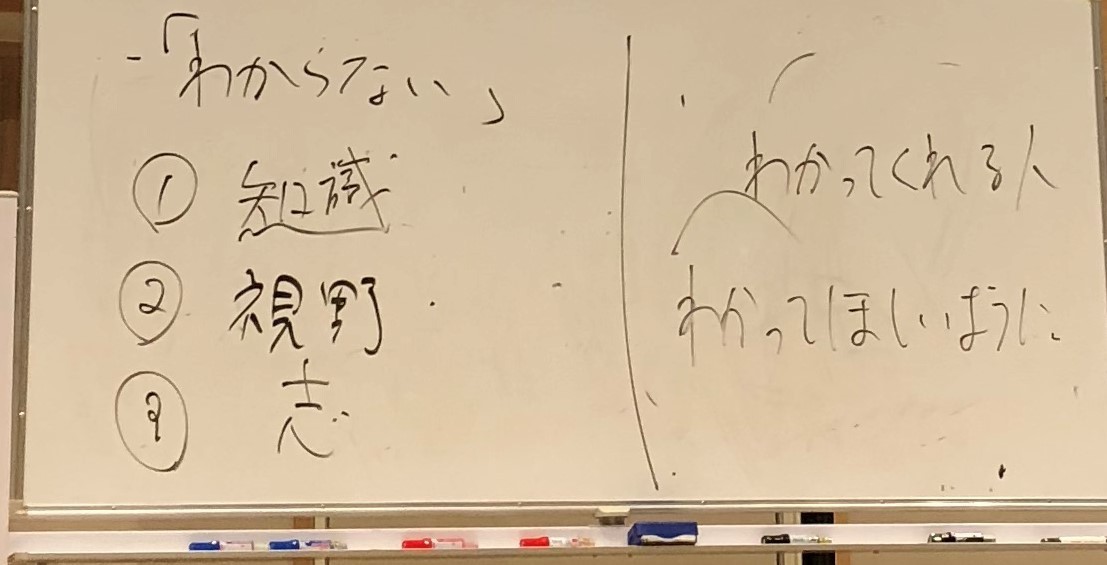 -「わからない」
① 知識
② 視野
③ 志
わかってくれる人
わかってほしいように